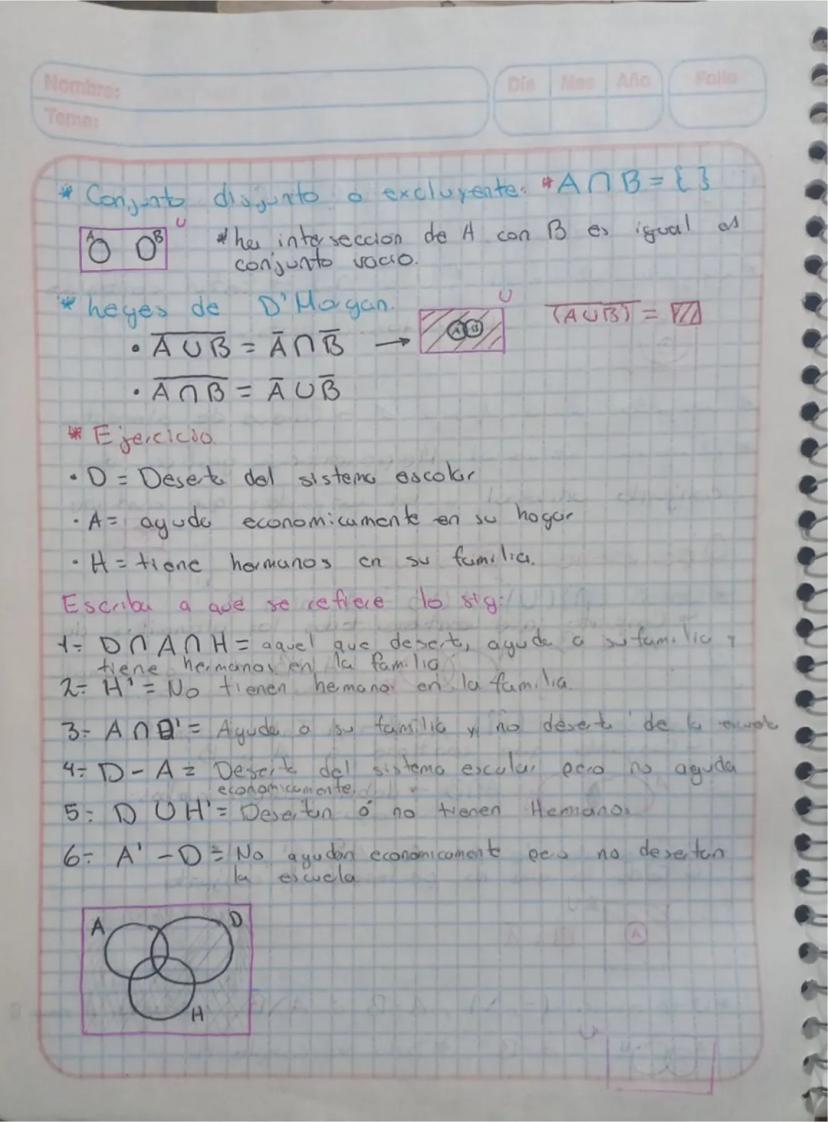 Nombre:
Tema:
Día Mes Año
Folio
* Conjunto disjunto o excluyente: *A∩B={ }
A B U
*La intersección de A con B es igual as
conjunto vacio.
* Leyes de D'Morgan.
U
A B
(A∪B)‾ =
• A∪B‾ = A̅∩B̅ →
• A∩B‾ = A̅∪B̅
* Ejercicio
• D = Deserta del sistema escolar
• A= ayuda economicamente en su hogar
• H = tiene hermanos en su familia.
Escriba a que se refiere lo sig:
1- D∩A∩H = aquel que deserta, ayuda a su familia y
tiene hermanos en la familia
2- H' = No tienen hermano en la familia
3- A∩D' = Ayuda a su familia y no deserta de la
4- D - A = Deserta del sistema escolar pero no ayuda
economicamente.
5- D ∪ H' = Desertan ó no tienen Hermanos
6- A' - D = No ayudan economicamente pero no desertan
la escuela
A D
H